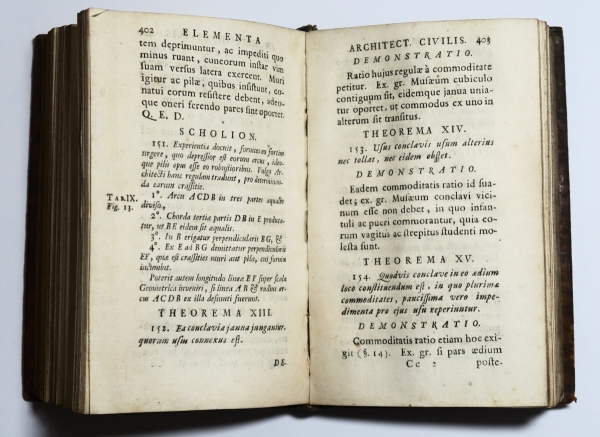 402 ELEMENTA
tem deprimuntur, ac impediti quo
minus ruant, cuneorum instar vim
suam versus latera exercent. Muri
igitur ac pilæ, quibus insistunt, co-
natui eorum resistere debent, adeo-
que oneri ferendo pares sint oportet.
Q. E. D.
SCHOLION.
151. Experientia docuit, fornices eo fortius
urgere, quo depressior est eorum arcus, ideo-
que pilis opus esse eo robustioribus. Vulgo Ar-
chitecti hanc regulam tradunt, pro determinan-
da earum crassitie.
TAB.IX.
Fig. 13.
1°. Arcu ACDB in tres partes æquales
diviso,
2°. Chorda tertia partis DB in E produca-
tur, ut BE eidem sit æqualis.
3°. In B erigatur perpendicularis BG, &
4°. Ex E ad RG demittatur perpendicularis
EF, quæ est crassities muri aut pilæ, cui fornix
incumbit.
Poterit autem longitudo lineæ EF super scala
Geometrica inveniri, si linea AB & radius ar-
cus ACDB ex illa desumti fuerint.
THEOREMA XIII.
152. Ea conclavia janua jungantur,
quorum usus connexus est.
DE-
ARCHITECT. CIVILIS. 403
DEMONSTRATIO.
Ratio hujus regulæ à commoditate
petitur. Ex. gr. Musæum cubiculo
contiguum sit, eidemque janua unia-
tur oportet, ut commodus ex uno in
alterum sit transitus.
THEOREMA XIV.
153. Usus conclavis usum alterius
nec tollat, nec eidem obstet.
DEMONSTRATIO.
Eadem commoditatis ratio id sua-
det; ex. gr. Musæum conclavi vici-
num esse non debet, in quo infan-
tuli ac pueri commorantur, quia eo-
rum vagitus ac strepitus studenti mo-
lesta sunt.
THEOREMA XV.
154. Quodvis conclave in eo ædium
loco constituendum est, in quo plurimæ
commoditates, paucissima vero impe-
dimenta pro ejus usu reperiuntur.
DEMONSTRATIO.
Commoditatis ratio etiam hoc exi-
git (§. 14). Ex. gr. si pars ædium
Cc 2 poste-